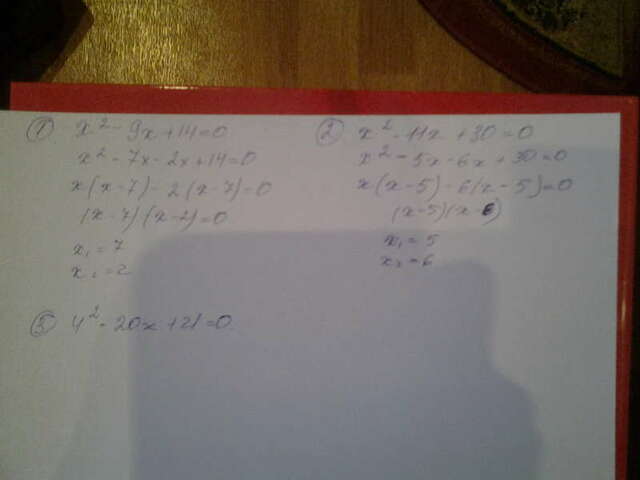 1) x² - 9x + 14 = 0
x² - 7x - 2x + 14 = 0
x(x - 7) - 2(x - 7) = 0
(x - 7)(x - 2) = 0
x₁ = 7
x₂ = 2
2) x² - 11x + 30 = 0
x² - 5x - 6x + 30 = 0
x(x - 5) - 6(x - 5) = 0
(x - 5)(x - 6)
x₁ = 5
x₂ = 6
3) 4² - 20x + 21 = 0